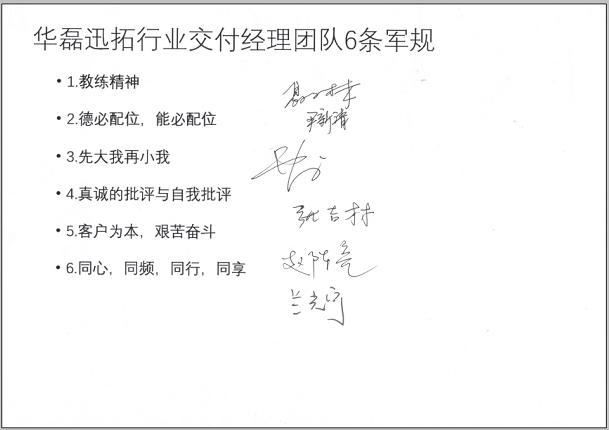 华磊迅拓行业交付经理团队6条军规
• 1.教练精神
• 2.德必配位，能必配位
• 3.先大我再小我
• 4.真诚的批评与自我批评
• 5.客户为本，艰苦奋斗
• 6.同心，同频，同行，同享
张吉林
赵阵亮
兰光宇